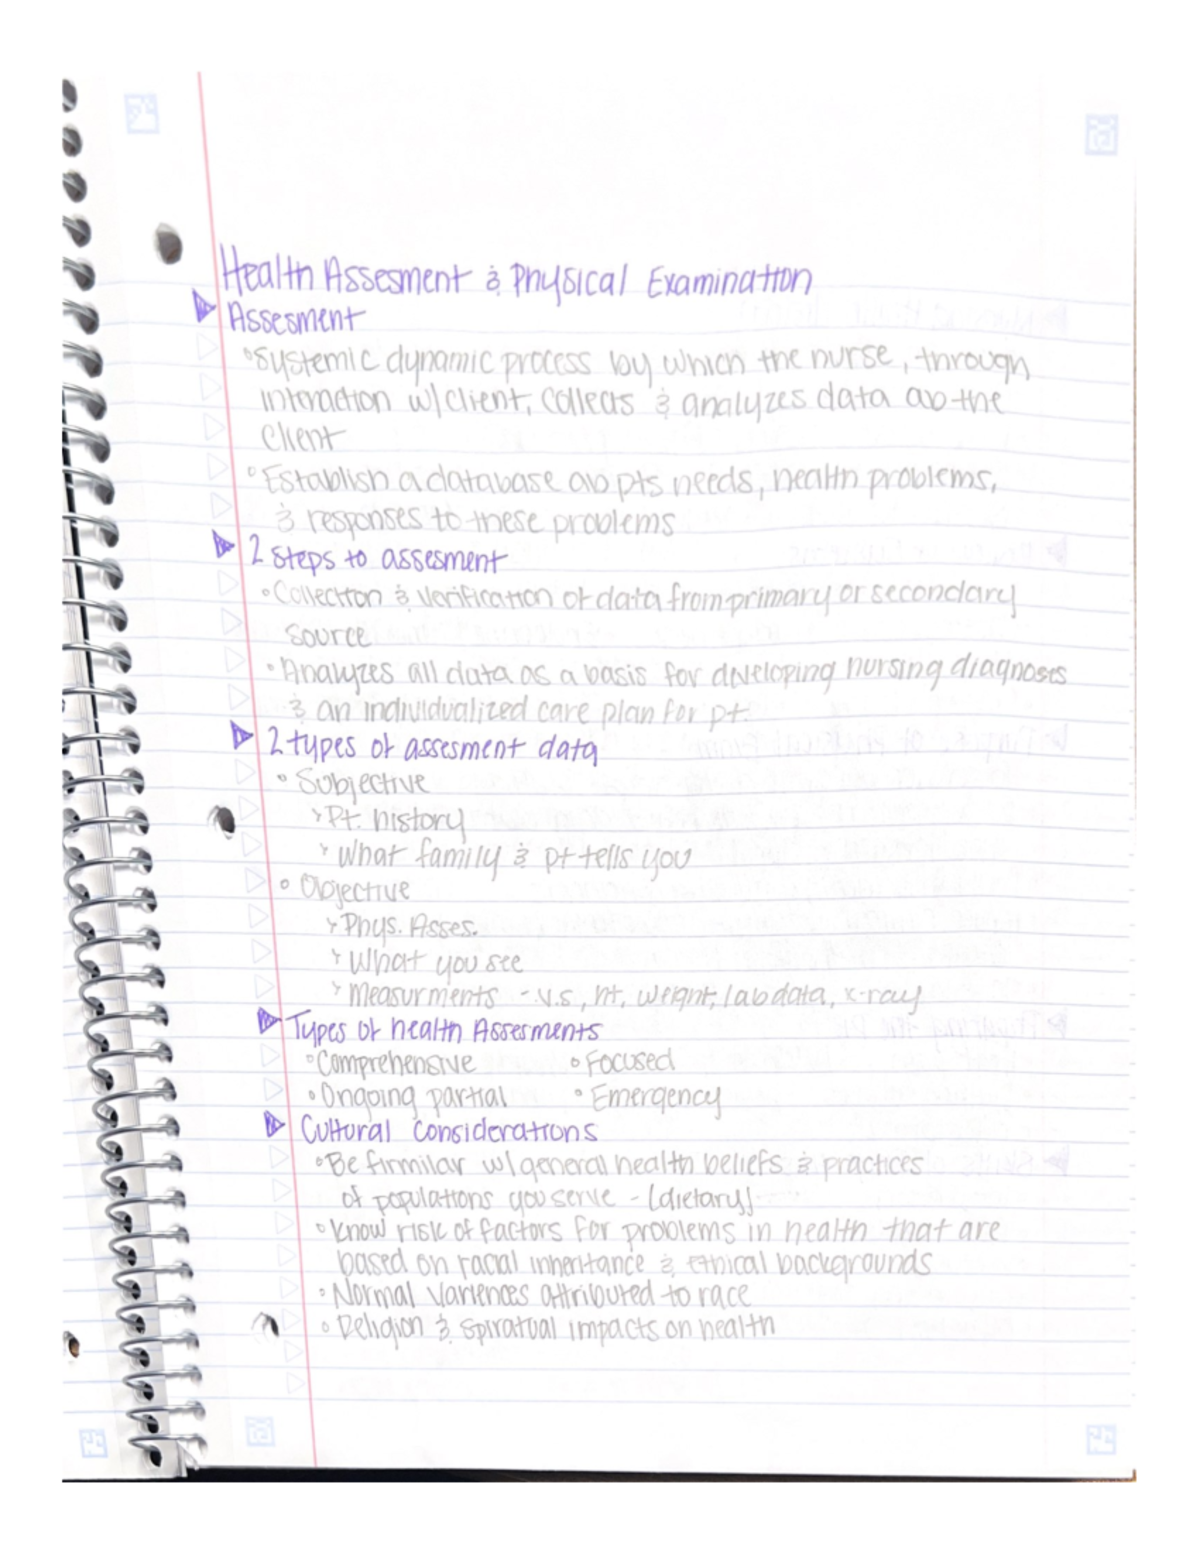 Health Assesment & Physical Examination
Assesment
Systemic dynamic process by which the nurse, through
interaction w/client, collects & analyzes data ab the
client
Establish a database ab pts needs, health problems,
& responses to these problems
2 steps to assesment
Collection & verification of data from primary or secondary
source
Analyzes all data as a basis for developing nursing diagnosis
& an individualized care plan for pt.
2 types of assesment data
Subjective
Pt. history
What family & pt tells you
Objective
Phys. Asses.
What you see
Measurments - v.s, ht, weight, lab data, x-ray
Types of health Assesments
Comprehensive Focused
Ongoing partial Emergency
Cultural Considerations
Be firmilar w/ general health beliefs & practices
of populations you serve - (dietary)
Know risk of factors for problems in health that are
based on racial inheritance & ethical backgrounds
Normal variences attributed to race
Religion & spiratual impacts on health